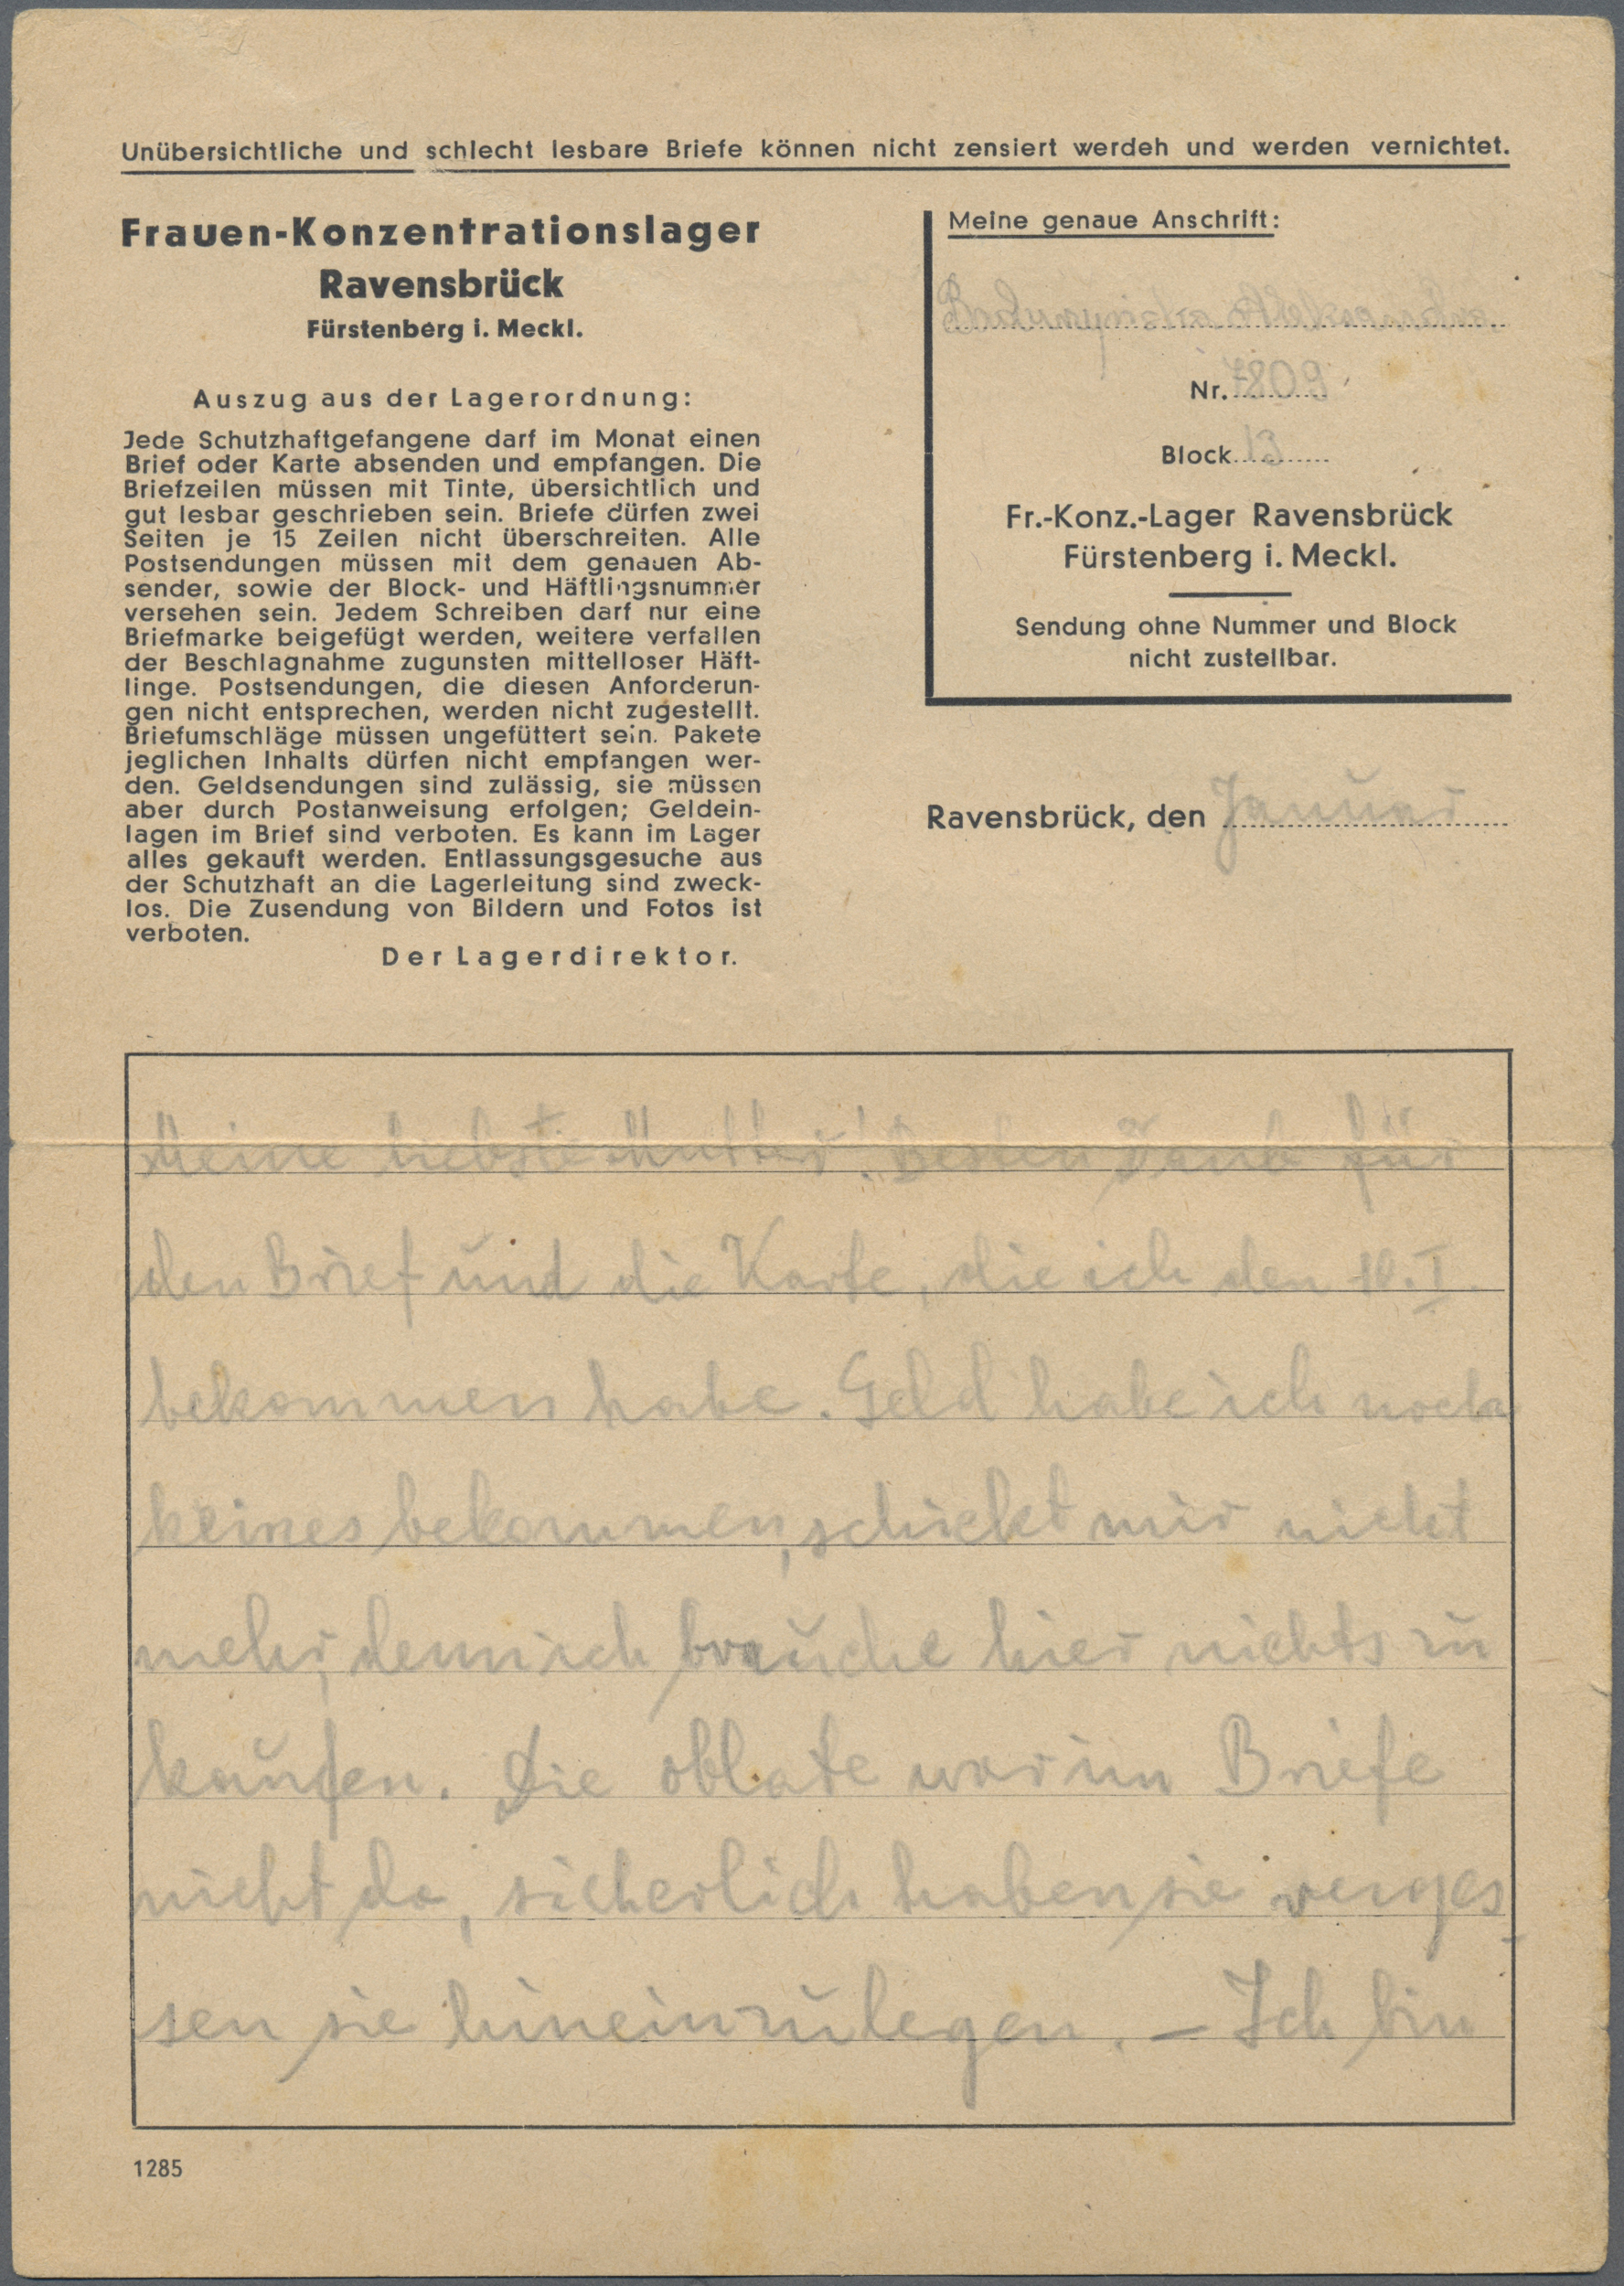 Unübersichtliche und schlecht lesbare Briefe können nicht zensiert werdeh und werden vernichtet.
Frauen-Konzentrationslager
Ravensbrück
Fürstenberg i. Meckl.
Auszug aus der Lagerordnung:
Jede Schutzhaftgefangene darf im Monat einen
Brief oder Karte absenden und empfangen. Die
Briefzeilen müssen mit Tinte, übersichtlich und
gut lesbar geschrieben sein. Briefe dürfen zwei
Seiten je 15 Zeilen nicht überschreiten. Alle
Postsendungen müssen mit dem genauen Ab-
sender, sowie der Block- und Häftlingsnummer
versehen sein. Jedem Schreiben darf nur eine
Briefmarke beigefügt werden, weitere verfallen
der Beschlagnahme zugunsten mittelloser Häft-
linge. Postsendungen, die diesen Anforderun-
gen nicht entsprechen, werden nicht zugestellt.
Briefumschläge müssen ungefüttert sein. Pakete
jeglichen Inhalts dürfen nicht empfangen wer-
den. Geldsendungen sind zulässig, sie müssen
aber durch Postanweisung erfolgen; Geldein-
lagen im Brief sind verboten. Es kann im Lager
alles gekauft werden. Entlassungsgesuche aus
der Schutzhaft an die Lagerleitung sind zweck-
los. Die Zusendung von Bildern und Fotos ist
verboten.
Der Lagerdirektor.
Meine genaue Anschrift:
Nr. 7809
Block 13
Fr.-Konz.-Lager Ravensbrück
Fürstenberg i. Meckl.
Sendung ohne Nummer und Block
nicht zustellbar.
Ravensbrück, den Januar
Meine liebste Mutter! Besten Dank für
den Brief und die Karte, die ich den 10.I.
bekommen habe. Geld habe ich noch
keines bekommen, schickt mir nicht
mehr, denn ich brauche hier nichts zu
kaufen. Die oblate war im Briefe
nicht da, sicherlich haben sie verges-
sen sie hineinzulegen. – Ich bin
1285